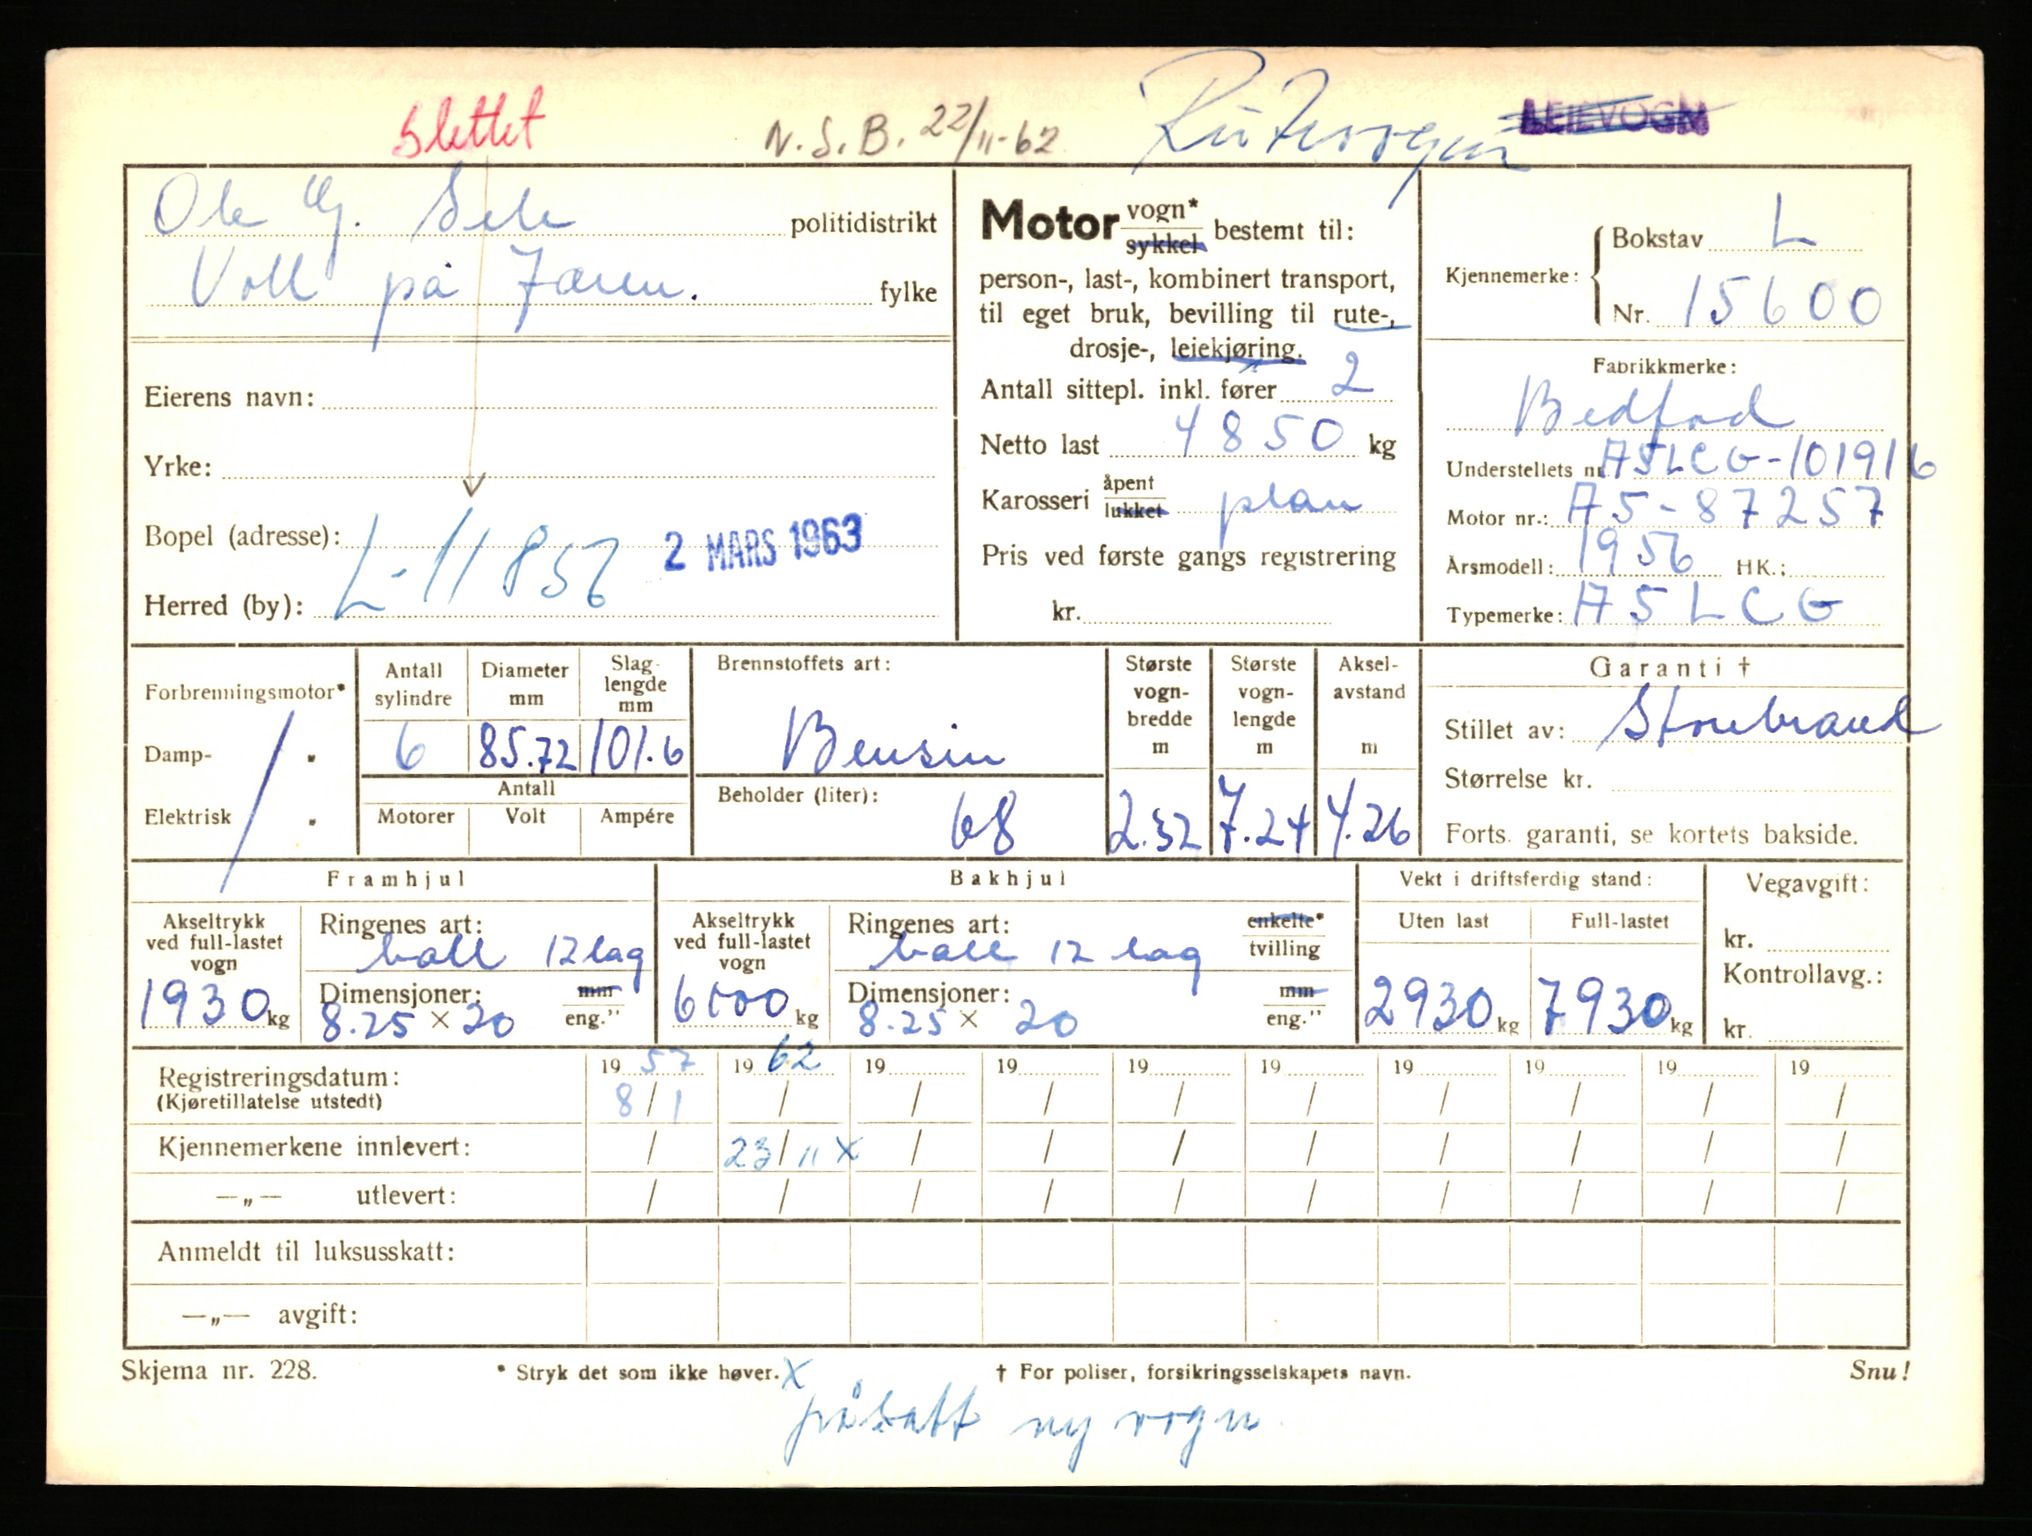 Slettet
N.S.B. 22/11-62
Rutevogn
LEIEVOGN
Ole G. Sele politidistrikt
Voll på Jæren. fylke
Eierens navn:
Yrke:
Bopel (adresse):
L-11856 2 MARS 1963
Herred (by):
Motor vogn* sykkel bestemt til:
person-, last-, kombinert transport,
til eget bruk, bevilling til rute-,
drosje-, leiekjøring.
Antall sittepl. inkl. fører 2
Netto last 4850 kg
Karosseri åpent lukket plan
Pris ved første gangs registrering
kr.
Kjennemerke: Bokstav L
Nr. 15600
Fabrikkmerke:
Bedford
Understellets nr. A5LCG-101916
Motor nr.: A5-87257
Årsmodell: 1956 HK.:
Typemerke: A5LCG
Forbrenningsmotor*
Damp- "
Elektrisk "
Antall sylindre 6
Diameter mm 85.72
Slag-lengde mm 101.6
Antall
Motorer Volt Ampére
Brennstoffets art:
Bensin
Beholder (liter): 68
Største vogn-bredde m 2.32
Største vogn-lengde m 7.24
Aksel-avstand m 4.26
Garanti †
Stillet av: Storebrand
Størrelse kr.
Forts. garanti, se kortets bakside.
Framhjul
Akseltrykk ved full-lastet vogn 1930 kg
Ringenes art: ball 12 lag
Dimensjoner: mm eng." 8.25 × 20
Bakhjul
Akseltrykk ved full-lastet vogn 6000 kg
Ringenes art: enkelte* tvilling ball 12 lag
Dimensjoner: mm eng." 8.25 × 20
Vekt i driftsferdig stand:
Uten last Full-lastet
2930 kg 7930 kg
Vegavgift:
kr.
Kontrollavg.:
kr.
Registreringsdatum: 19 57 19 62 19 19 19 19 19 19 19 19
(Kjøretillatelse utstedt) 8/1 / / / / / / / / /
Kjennemerkene innlevert: / 23/11 x / / / / / / / /
—„— utlevert: / / / / / / / / / /
Anmeldt til luksusskatt:
—„— avgift:
Skjema nr. 228. * Stryk det som ikke høver. † For poliser, forsikringsselskapets navn. Snu!
x påsatt ny vogn